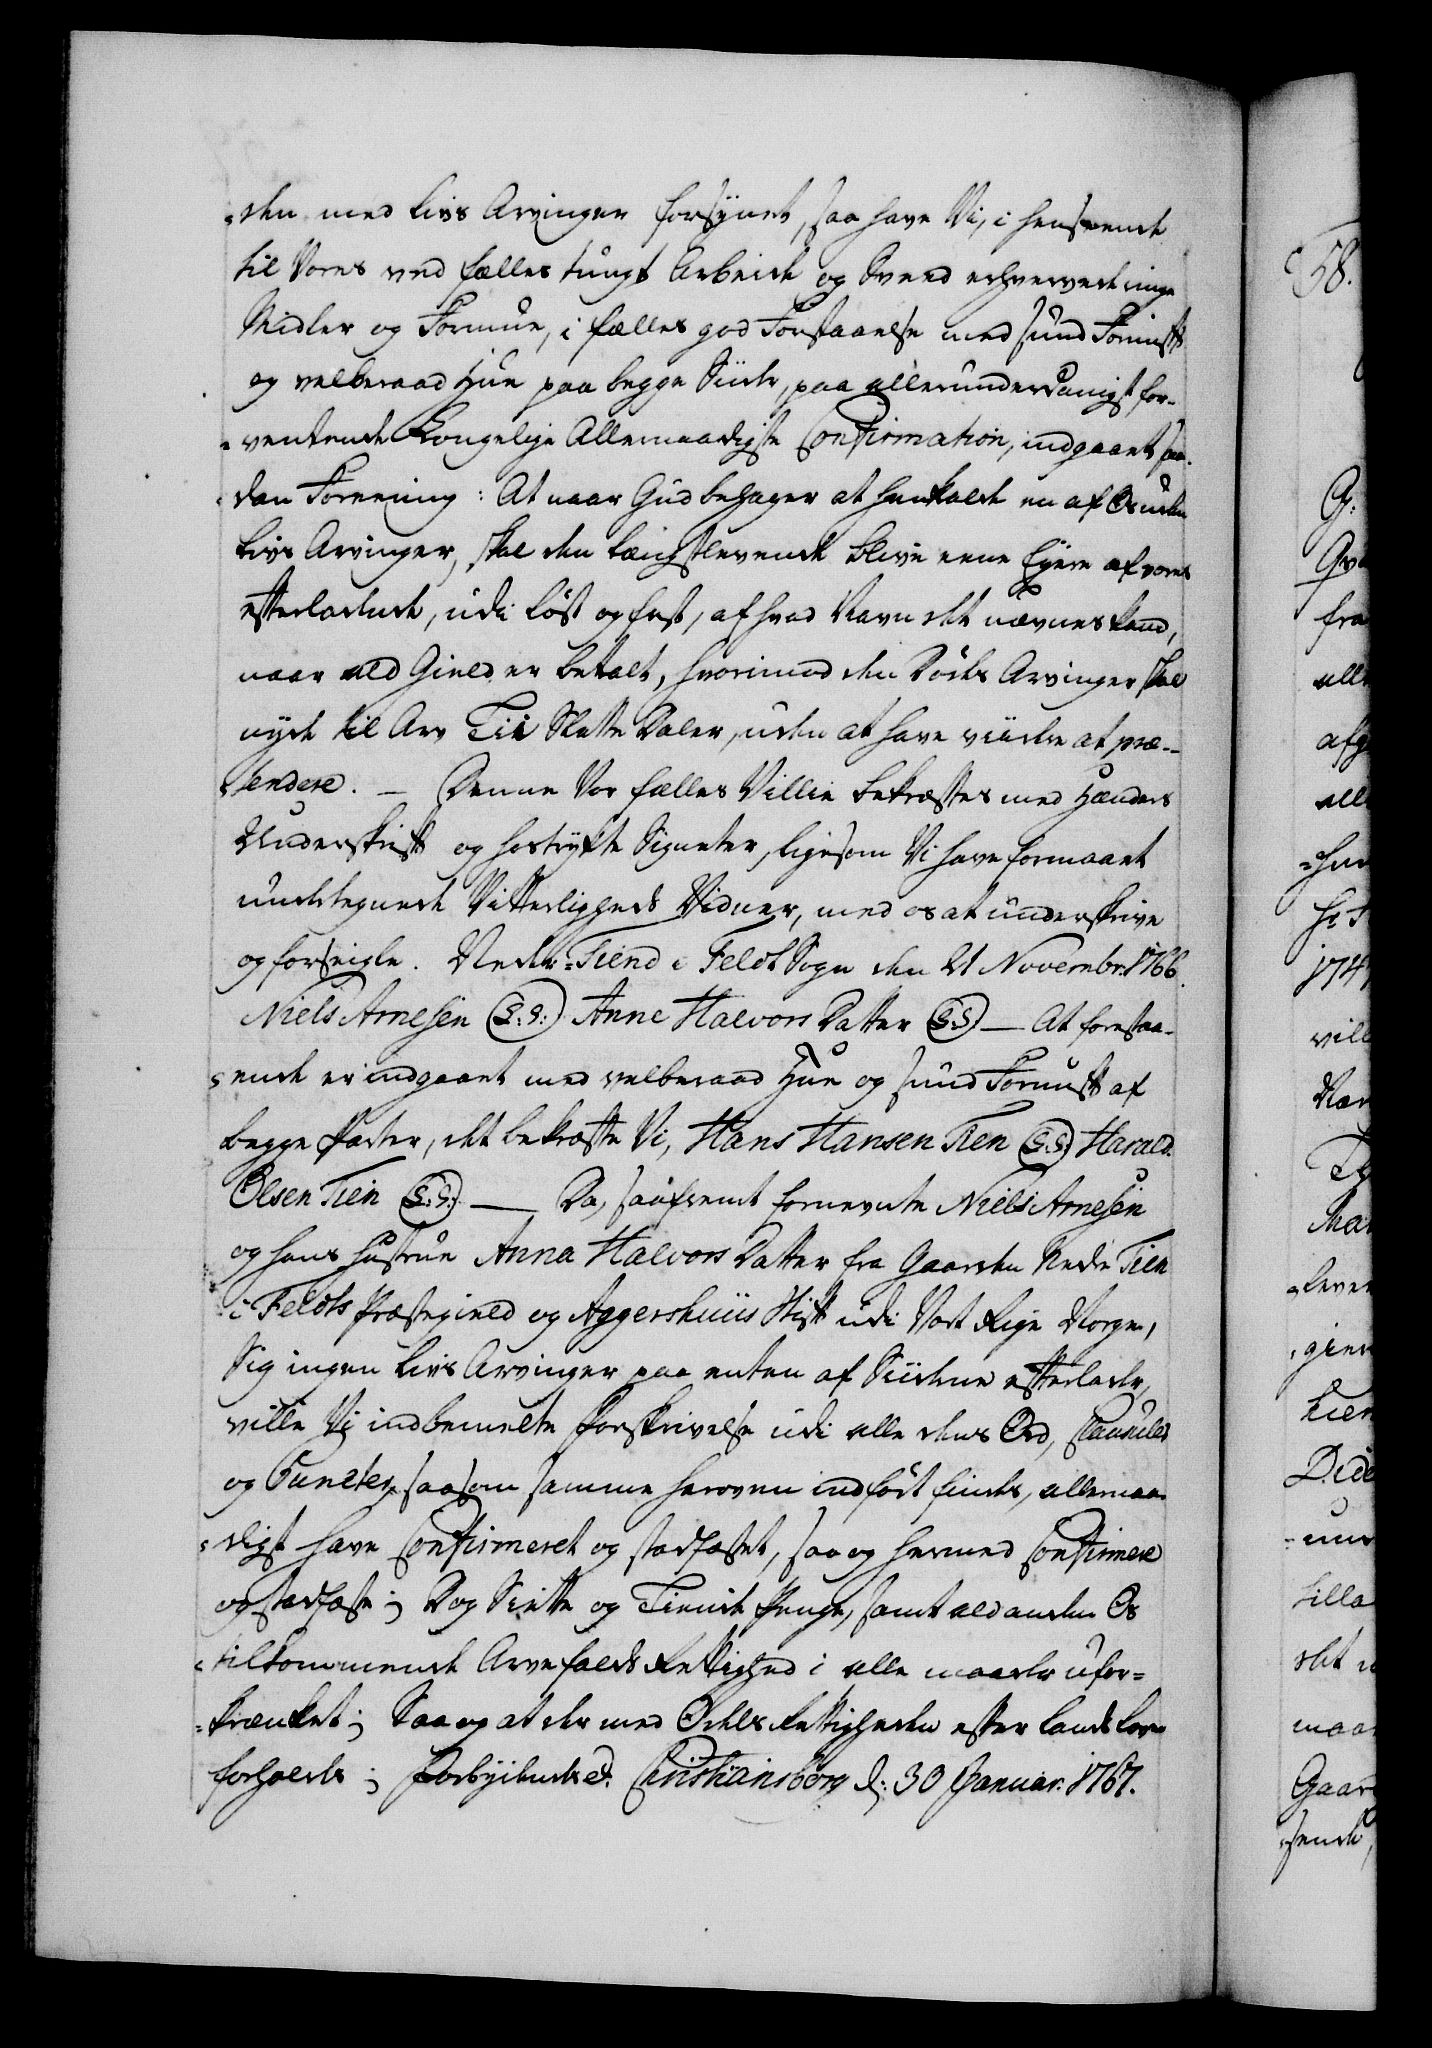 =den med Livs Arvinger forsynet, saa have Vi, i henseende
til Vores ved fælles tungt Arbeide og Sveed erhvervede ringe
Midler og Formue, i fælles god Forstaaelse med sund Fornuft
og velberaad Hue paa begge Siider, paa allerunderdanigst for-
=ventende Kongelige Allernaadigste Confirmation, indgaaet saa-
=dan Forening: At naar Gud behager at henkalde en af Os uden
Livs Arvinger, skal den længstlevende blive eene Eyere af vores
efterladende, udi løst og fast, af hvad Navn det nævnes kand,
naar ald Gield er betalt, hvorimod den Dødes Arvinger skal
nyde til Arv Tii Slette Daler, uden at have viidere at præ-
=tendere. — Denne Vor fælles Villie bekræftes med Hænders
Underskrift og hostrykte Signeter, ligesom Vi have formaaet
undertegnede Vitterligheds Vidner, med os at underskrive
og forseigle. Nedre=Tiend i Feldt Sogn den 21 Novembr. 1766.
Niels Arnesen (L:S:) Anne Halvors Datter (L:S:) — At forestaa-
=ende er indgaaet med velberaad Hue og sund Fornuft af
begge Parter, det bekræfte Vi, Hans Hansen Tien (L:S:) Harald
Olsen Tien (L:S:) — Da, saafremt fornevnte Niels Arnesen
og hans Hustrue Anna Halvors Datter fra Gaarden Nedre Tien
i Feldts Præstegield og Aggershuus Stift udi Vort Rige Norge,
Sig ingen Livs Arvinger paa enten af Siiderne efterlader,
ville Vi indbemelte Forskrivelse udi alle dens Ord, Clausuler
og Puncter, saasom samme heroven indført findes, allernaa-
=digst have Confirmeret og stadfæstet, saa og hermed Confirmere
og stadfæste; Dog Siette og Tiende Penge, samt ald anden Os
tilkommende Arvefalds Rettighed i alle maader ufor=
=krænket; Saa og at der med Odels Rettigheden efter Lands Lov
forholdes; Forbydendes &. Christiansborg d: 30 Januar. 1767.
58.